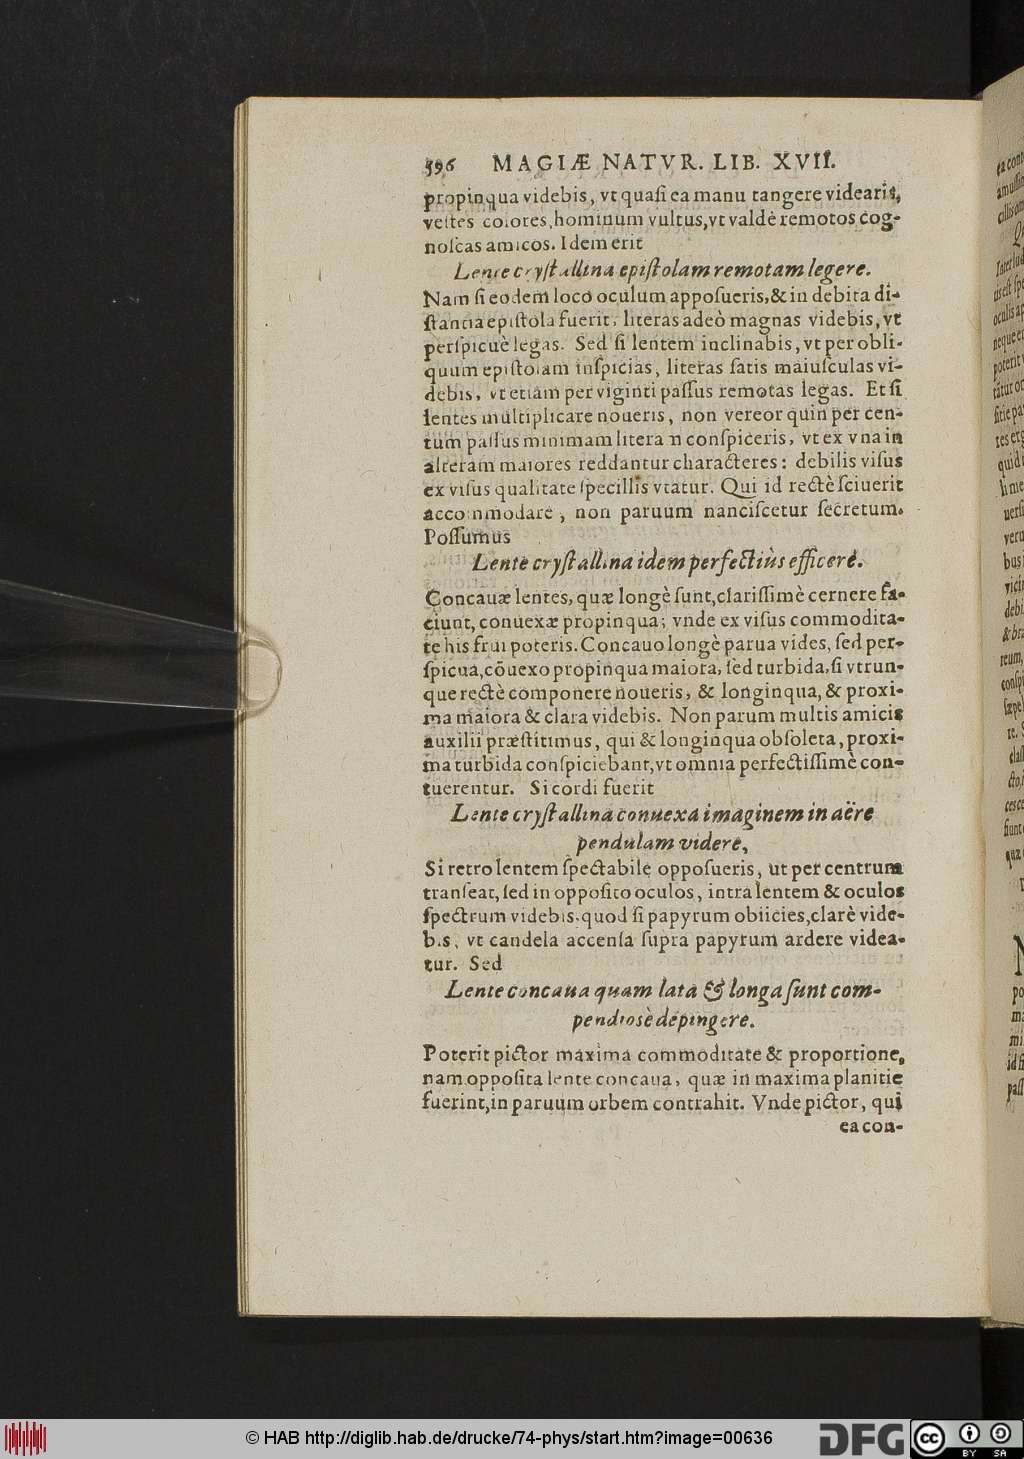 596 MAGIÆ NATVR. LIB. XVII.
propinqua videbis, vt quaſi ea manu tangere videaris,
veſtes colores, hominum vultus, vt valdè remotos cog-
noſcas amicos. Idem erit
Lente cryſtallina epiſtolam remotam legere.
Nam ſi eodem loco oculum appoſueris, & in debita di-
ſtantia epiſtola fuerit, literas adeò magnas videbis, vt
perſpicuè legas. Sed ſi lentem inclinabis, vt per obli-
quum epiſtolam inſpicias, literas ſatis maiuſculas vi-
debis, vt etiam per viginti paſſus remotas legas. Et ſi
lentes multiplicare noueris, non vereor quin per cen-
tum paſſus minimam litera n conſpiceris, vt ex vna in
alteram maiores reddantur characteres: debilis viſus
ex viſus qualitate ſpecillis vtatur. Qui id rectè ſciuerit
accommodare, non paruum nanciſcetur ſecretum.
Poſſumus
Lente cryſtallina idem perfectiùs efficere.
Concauæ lentes, quæ longè ſunt, clariſſimè cernere fa-
ciunt, conuexæ propinqua; vnde ex viſus commodita-
te his frui poteris. Concauo longè parua vides, ſed per-
ſpicua, cōuexo propinqua maiora, ſed turbida, ſi vtrun-
que rectè componere noueris, & longinqua, & proxi-
ma maiora & clara videbis. Non parum multis amicis
auxilii præſtitimus, qui & longinqua obſoleta, proxi-
ma turbida conſpiciebant, vt omnia perfectiſſimè con-
tuerentur. Si cordi fuerit
Lente cryſtallina conuexa imaginem in aëre
pendulam videre,
Si retro lentem ſpectabile oppoſueris, ut per centrum
tranſeat, ſed in oppoſito oculos, intra lentem & oculos
ſpectrum videbis, quod ſi papyrum obiicies, clarè vide-
bis, vt candela accenſa ſupra papyrum ardere videa-
tur. Sed
Lente concaua quam lata & longa ſunt com-
pendiosè depingere.
Poterit pictor maxima commoditate & proportione,
nam oppoſita lente concaua, quæ in maxima planitie
fuerint, in paruum orbem contrahit. Vnde pictor, qui
ea con-
© HAB http://diglib.hab.de/drucke/74-phys/start.htm?image=00636
DFG
cc BY SA